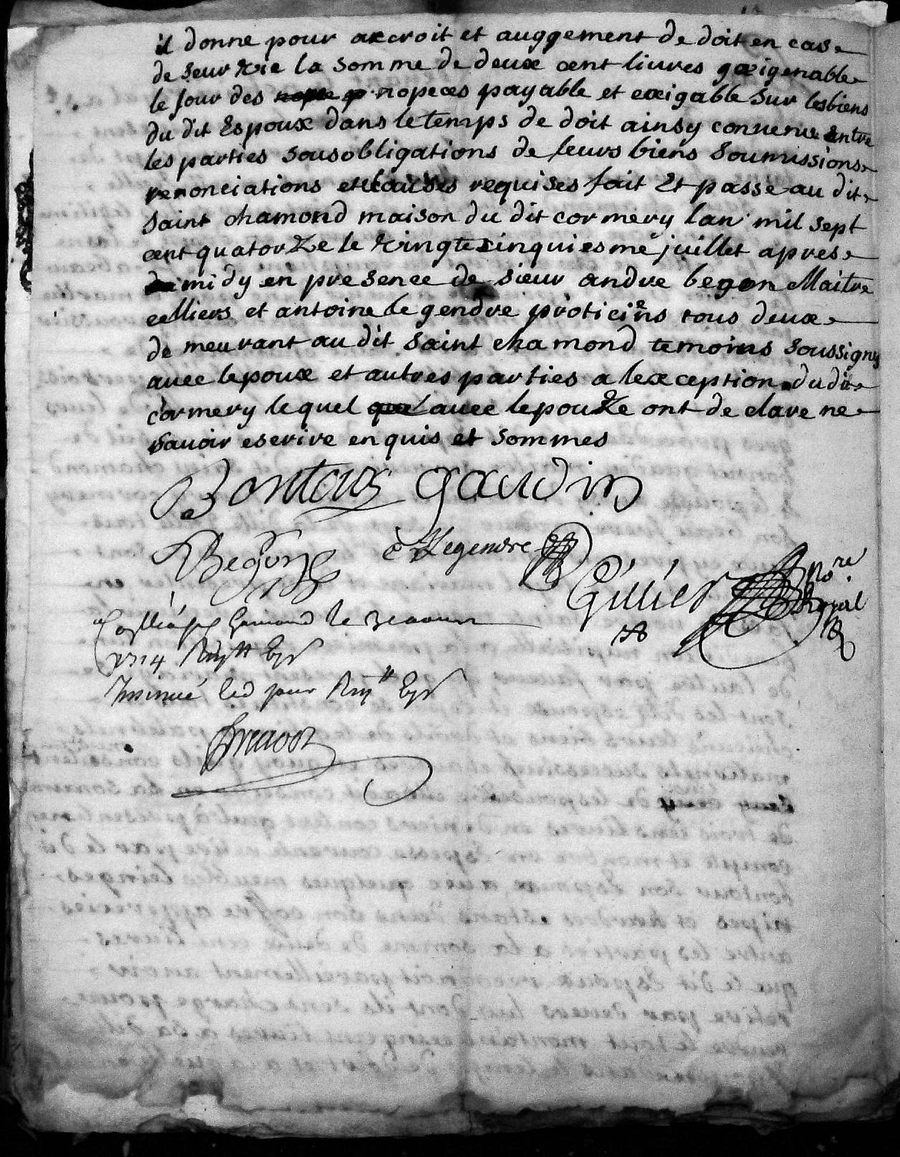 il donne pour accroit et auggement de doit en cas
de survie la somme de deux cent livres gaigenable
le jour des nopces payable et exigable sur les biens
du dit Espoux dans le temps de doit ainsy convenu entre
les parties sous obligations de leurs biens soumissions
renonciations et clauses requises fait Et passe au dit
saint chamond maison du dit cormery lan mil sept
cent quatorze le vingt cinquiesme juillet apres
midy en presence de sieur andre begon Maitre
celliers et antoine legendre proticiens tous deux
de meurant au dit saint chamond temoins soussigns
avec lepoux et autres parties a lexception du dit
cormery le quel avec lepouze ont de clare ne
savoir escrire en quis et sommes
gaudin
Begon Legendre
No.re
Royal
1714
Insinué led jour